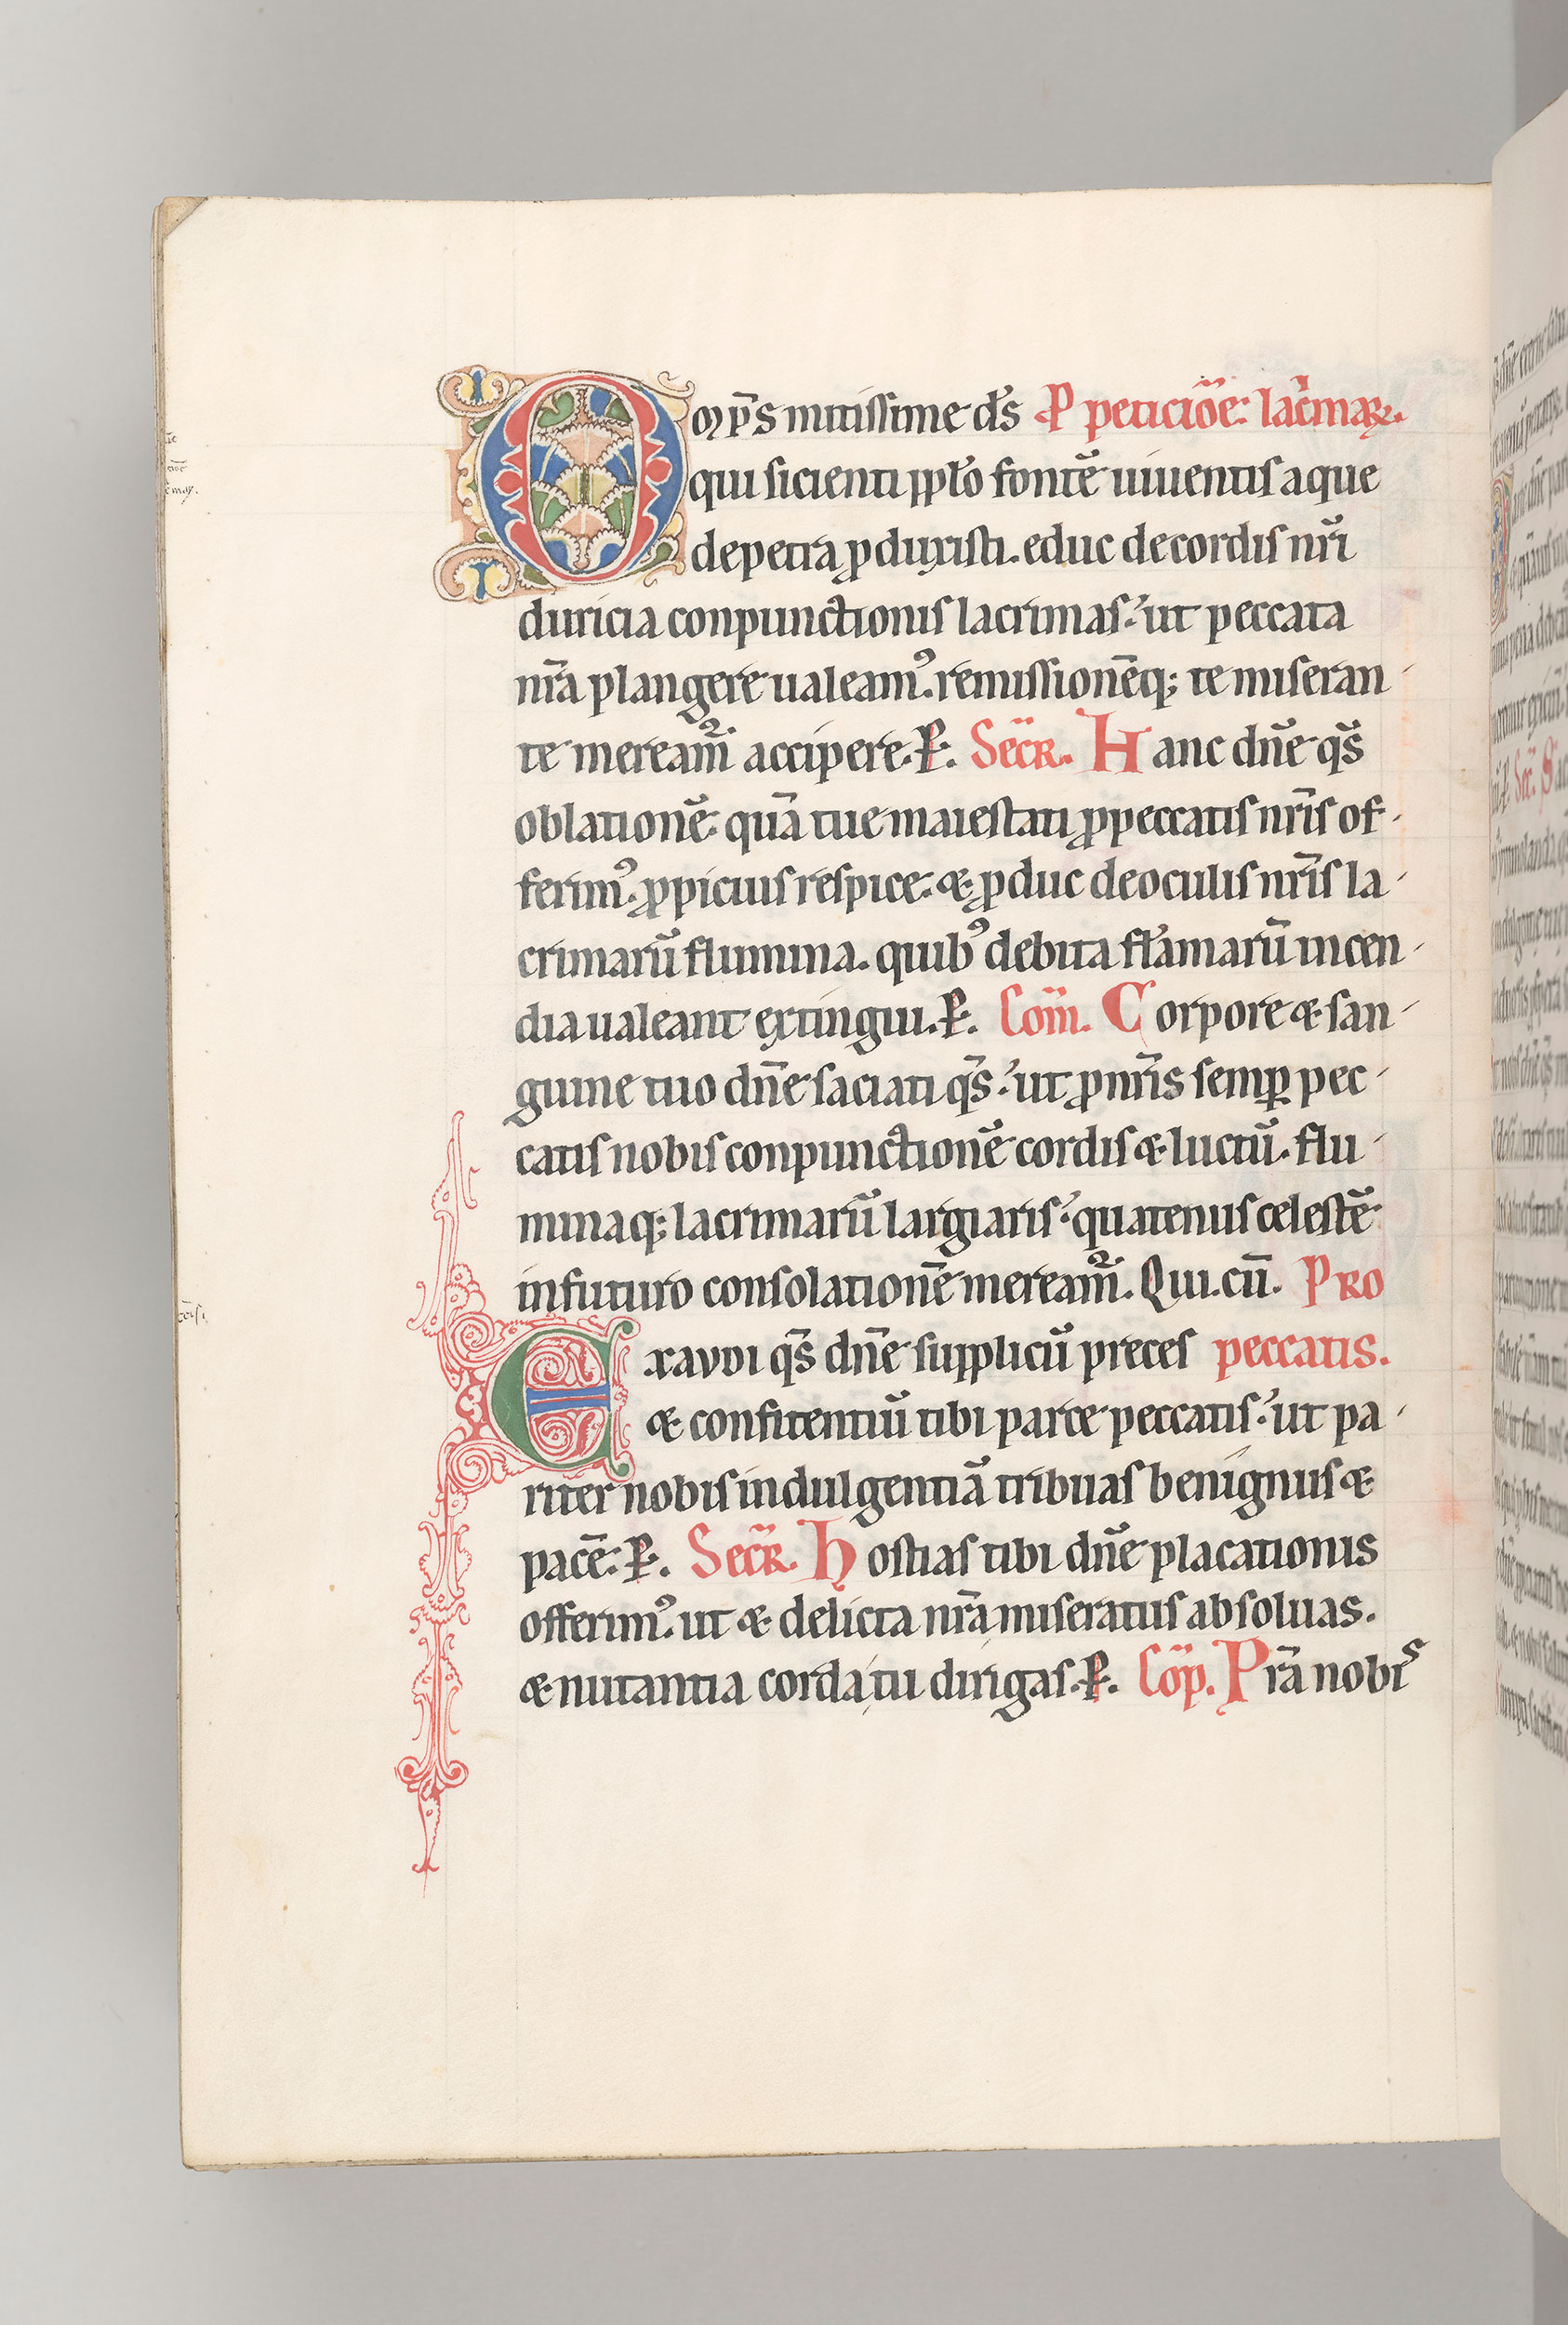 Om̅p̅s mitissime d̅s P peticio̅e lac̅rimaꝝ.
qui sicienti pp̅lo fonte̅ uiuentis aque
de petra ꝓduxisti. educ de cordis nr̅i
duricia conpunctionis lacrimas. ut peccata
nr̅a plangere ualeamꝰ. remissione̅q; te miseran
te meream᷑ accipere. P̲. Secr̅. Hanc dn̅e qs̅
oblatione̅. qua̅ tue maiestati ꝓ peccatis nr̅is of
ferimꝰ. ꝓpicius respice. & ꝓduc de oculis nr̅is la
crimaru̅ flumina. quibꝰ debita fla̅maru̅ incen
dia ualeant extingui. P̲. Com̅. Corpore & san
guine tuo dn̅e saciati qs̅. ut ꝓ nr̅is semꝑ pec
catis nobis conpunctione̅ cordis & luctu̅. flu
minaq; lacrimaru̅ largiaris. quatenus celeste̅
in futuro consolatione̅ meream᷑. Qui. cu̅. Pro
Exaudi qs̅ dn̅e supplicu̅ preces peccatis.
& confitentiu̅ tibi parce peccatis. ut pa
rit̅er nobis indulgentia̅ tribuas benignus &
pace̅. P̲. Secr̅. Hostias tibi dn̅e placationis
offerimꝰ. ut & delicta nr̅a miseratus absoluas.
& nutantia corda tu dirigas. P̲. Co̅p. Pr̅a nobis